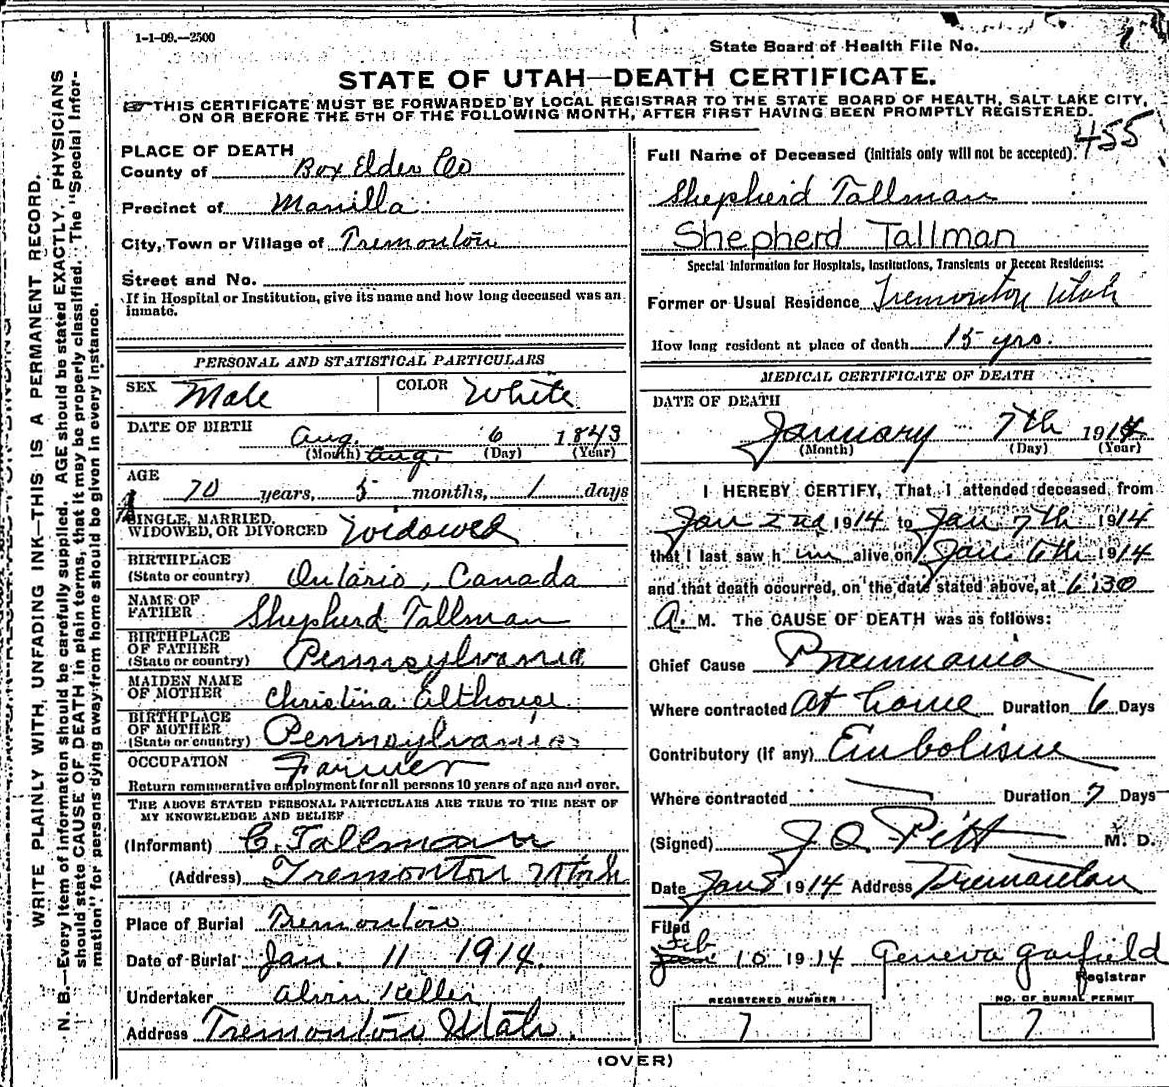 1-1-09.—2500
State Board of Health File No. 7
STATE OF UTAH—DEATH CERTIFICATE.
THIS CERTIFICATE MUST BE FORWARDED BY LOCAL REGISTRAR TO THE STATE BOARD OF HEALTH, SALT LAKE CITY,
ON OR BEFORE THE 5TH OF THE FOLLOWING MONTH, AFTER FIRST HAVING BEEN PROMPTLY REGISTERED.
455
WRITE PLAINLY WITH, UNFADING INK—THIS IS A PERMANENT RECORD.
N. B.—Every item of information should be carefully supplied. AGE should be stated EXACTLY. PHYSICIANS
should state CAUSE OF DEATH in plain terms, that it may be properly classified. The "Special Infor-
mation" for persons dying away from home should be given in every instance.
PLACE OF DEATH
County of Box Elder Co
Precinct of Manilla
City, Town or Village of Tremonton
Street and No.
If in Hospital or Institution, give its name and how long deceased was an
inmate.
PERSONAL AND STATISTICAL PARTICULARS
SEX Male COLOR White
DATE OF BIRTH Aug. 6 1843
(Month) Aug. (Day) (Year)
AGE
70 years, 5 months, 1 days
SINGLE, MARRIED,
WIDOWED, OR DIVORCED Widowed
BIRTHPLACE
(State or country) Ontario, Canada
NAME OF
FATHER Shepherd Tallman
BIRTHPLACE
OF FATHER
(State or country) Pennsylvania
MAIDEN NAME
OF MOTHER Christina Althouse
BIRTHPLACE
OF MOTHER
(State or country) Pennsylvania
OCCUPATION Farmer
Return remunerative employment for all persons 10 years of age and over.
THE ABOVE STATED PERSONAL PARTICULARS ARE TRUE TO THE BEST OF
MY KNOWELEDGE AND BELIEF
(Informant) C. Tallman
(Address) Tremonton Utah
Place of Burial Tremonton
Date of Burial Jan. 11 1914.
Undertaker Alvin Keller
Address Tremonton Utah.
Full Name of Deceased (initials only will not be accepted).
Shepherd Tallman
Shepherd Tallman
Special Information for Hospitals, Institutions, Transients or Recent Residents:
Former or Usual Residence Tremonton Utah
How long resident at place of death 15 yrs.
MEDICAL CERTIFICATE OF DEATH
DATE OF DEATH
January 7th 1914
(Month) (Day) (Year)
I HEREBY CERTIFY, That I attended deceased from
Jan 2nd 1914 to Jan 7th 1914
that I last saw him alive on Jan. 6th 1914
and that death occurred, on the date stated above, at 6:30
A. M. The CAUSE OF DEATH was as follows:
Chief Cause Pneumonia
Where contracted At home Duration 6 Days
Contributory (if any) Embolism
Where contracted Duration 7 Days
(Signed) J. Q. Pitt M. D.
Date Jan 8 1914 Address Tremonton
Filed
Feb
Jan 10 1914 Geneva Garfield
Registrar
REGISTERED NUMBER
7
NO. OF BURIAL PERMIT
7
(OVER)